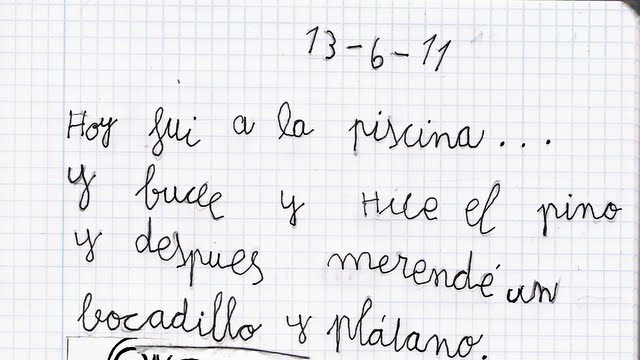 13-6-11
Hoy fui a la piscina...
y bucee y Hice el pino
y despues merendé un
bocadillo y plátano.